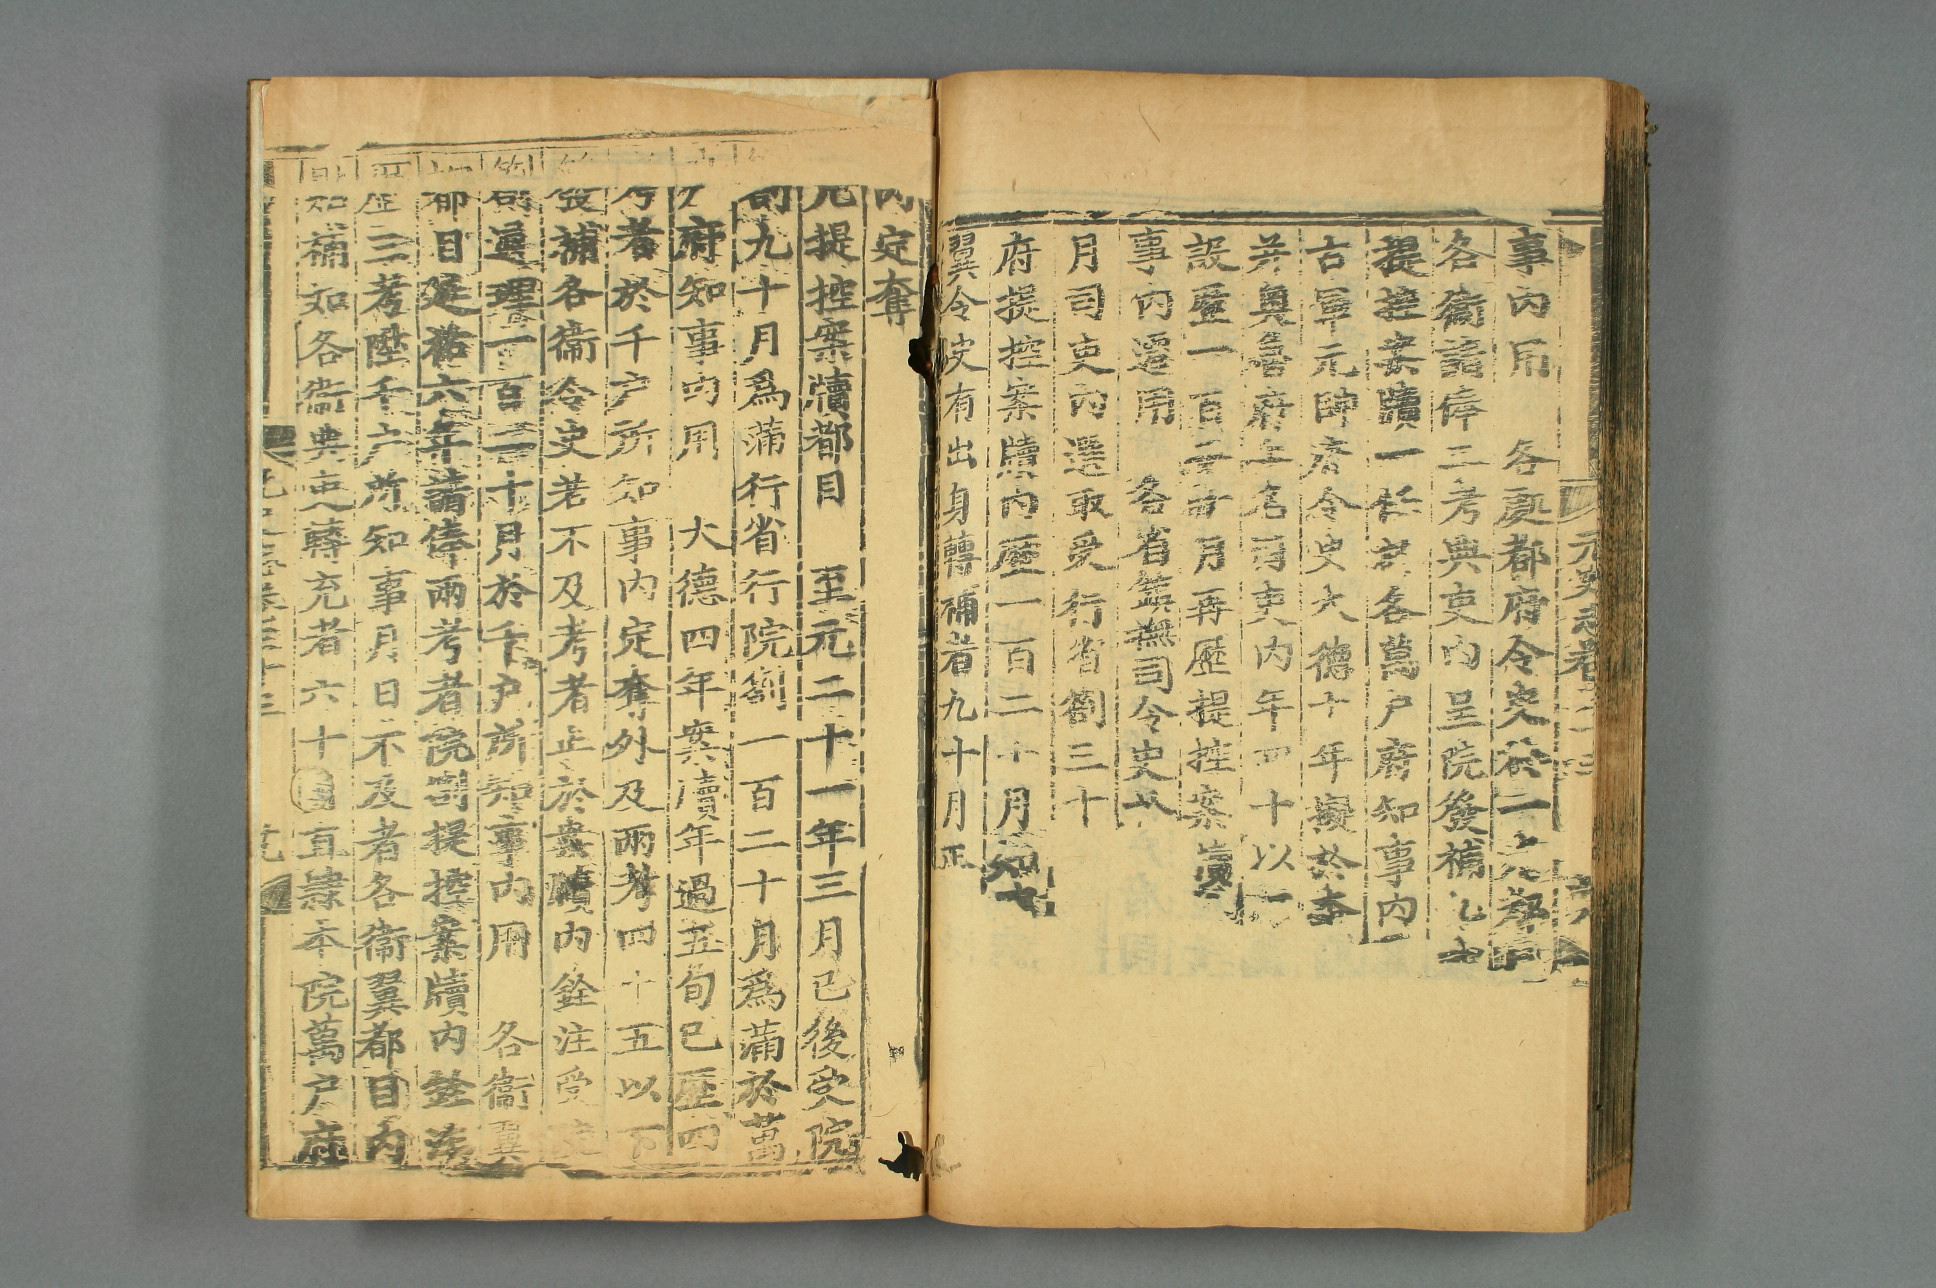 元史志卷三十三
事內用　各處都府令史
各衛諸俸三考典吏內呈院發補
提控案牘一任於各萬戶府知事內
古軍元帥府令史大德十年擬於本
并奧魯府上名司吏內年四十以
設歷一百二十月再歷提控案牘
事內選用　各省鎮撫司令史
月司吏內選取受行省劄三十
府提控案牘內歷一百二十月知
翼令史有出身轉補者九十月正
內定奪
充提控案牘都目　至元二十一年三月已後受院
劄九十月為滿行省行院劄一百二十月為滿於萬
戶府知事內用　大德四年案牘年過五旬已歷四
考者於千戶所知事內定奪外及兩考四十五以下
發補各衛令史若不及考者止於案牘內銓注受院
劄通理一百二十月於千戶所知事內用　各衛翼
都目延祐六年請俸兩考者院劄提控案牘內銓注
歷三考陞千戶所知事月日不及者各衛翼都目內
如補各衛典吏轉充者六十月直隸本院萬戶府